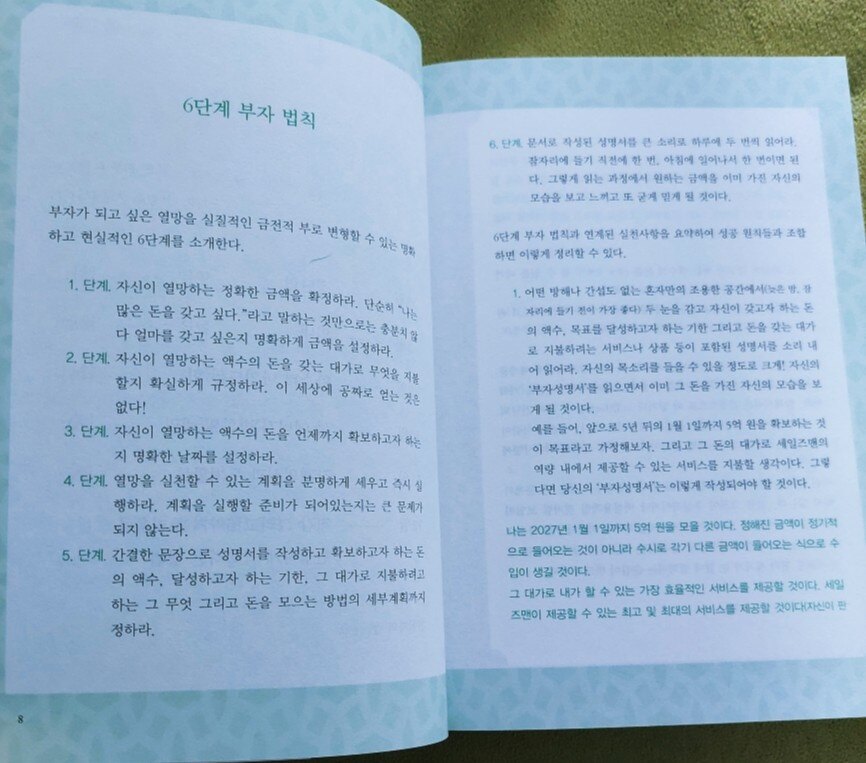 6단계 부자 법칙
부자가 되고 싶은 열망을 실질적인 금전적 부로 변형할 수 있는 명확
하고 현실적인 6단계를 소개한다.
1. 단계. 자신이 열망하는 정확한 금액을 확정하라. 단순히 “나는
많은 돈을 갖고 싶다.”라고 말하는 것만으로는 충분치 않
다 얼마를 갖고 싶은지 명확하게 금액을 설정하라.
2. 단계. 자신이 열망하는 액수의 돈을 갖는 대가로 무엇을 지불
할지 확실하게 규정하라. 이 세상에 공짜로 얻는 것은
없다!
3. 단계. 자신이 열망하는 액수의 돈을 언제까지 확보하고자 하는
지 명확한 날짜를 설정하라.
4. 단계. 열망을 실천할 수 있는 계획을 분명하게 세우고 즉시 실
행하라. 계획을 실행할 준비가 되어있는지는 큰 문제가
되지 않는다.
5. 단계. 간결한 문장으로 성명서를 작성하고 확보하고자 하는 돈
의 액수, 달성하고자 하는 기한, 그 대가로 지불하려고
하는 그 무엇 그리고 돈을 모으는 방법의 세부계획까지
정하라.
8
6. 단계. 문서로 작성된 성명서를 큰 소리로 하루에 두 번씩 읽어라.
잠자리에 들기 직전에 한 번, 아침에 일어나서 한 번이면 된
다. 그렇게 읽는 과정에서 원하는 금액을 이미 가진 자신의
모습을 보고 느끼고 또 굳게 믿게 될 것이다.
6단계 부자 법칙과 연계된 실천사항을 요약하여 성공 원칙들과 조합
하면 이렇게 정리할 수 있다.
1. 어떤 방해나 간섭도 없는 혼자만의 조용한 공간에서(늦은 밤, 잠
자리에 들기 전이 가장 좋다) 두 눈을 감고 자신이 갖고자 하는 돈
의 액수, 목표를 달성하고자 하는 기한 그리고 돈을 갖는 대가
로 지불하려는 서비스나 상품 등이 포함된 성명서를 소리 내
어 읽어라. 자신의 목소리를 들을 수 있을 정도로 크게! 자신의
‘부자성명서’를 읽으면서 이미 그 돈을 가진 자신의 모습을 보
게 될 것이다.
예를 들어, 앞으로 5년 뒤의 1월 1일까지 5억 원을 확보하는 것
이 목표라고 가정해보자. 그리고 그 돈의 대가로 세일즈맨의
역량 내에서 제공할 수 있는 서비스를 지불할 생각이다. 그렇
다면 당신의 ‘부자성명서’는 이렇게 작성되어야 할 것이다.
나는 2027년 1월 1일까지 5억 원을 모을 것이다. 정해진 금액이 정기적
으로 들어오는 것이 아니라 수시로 각기 다른 금액이 들어오는 식으로 수
입이 생길 것이다.
그 대가로 내가 할 수 있는 가장 효율적인 서비스를 제공할 것이다. 세일
즈맨이 제공할 수 있는 최고 및 최대의 서비스를 제공할 것이다(자신이 판